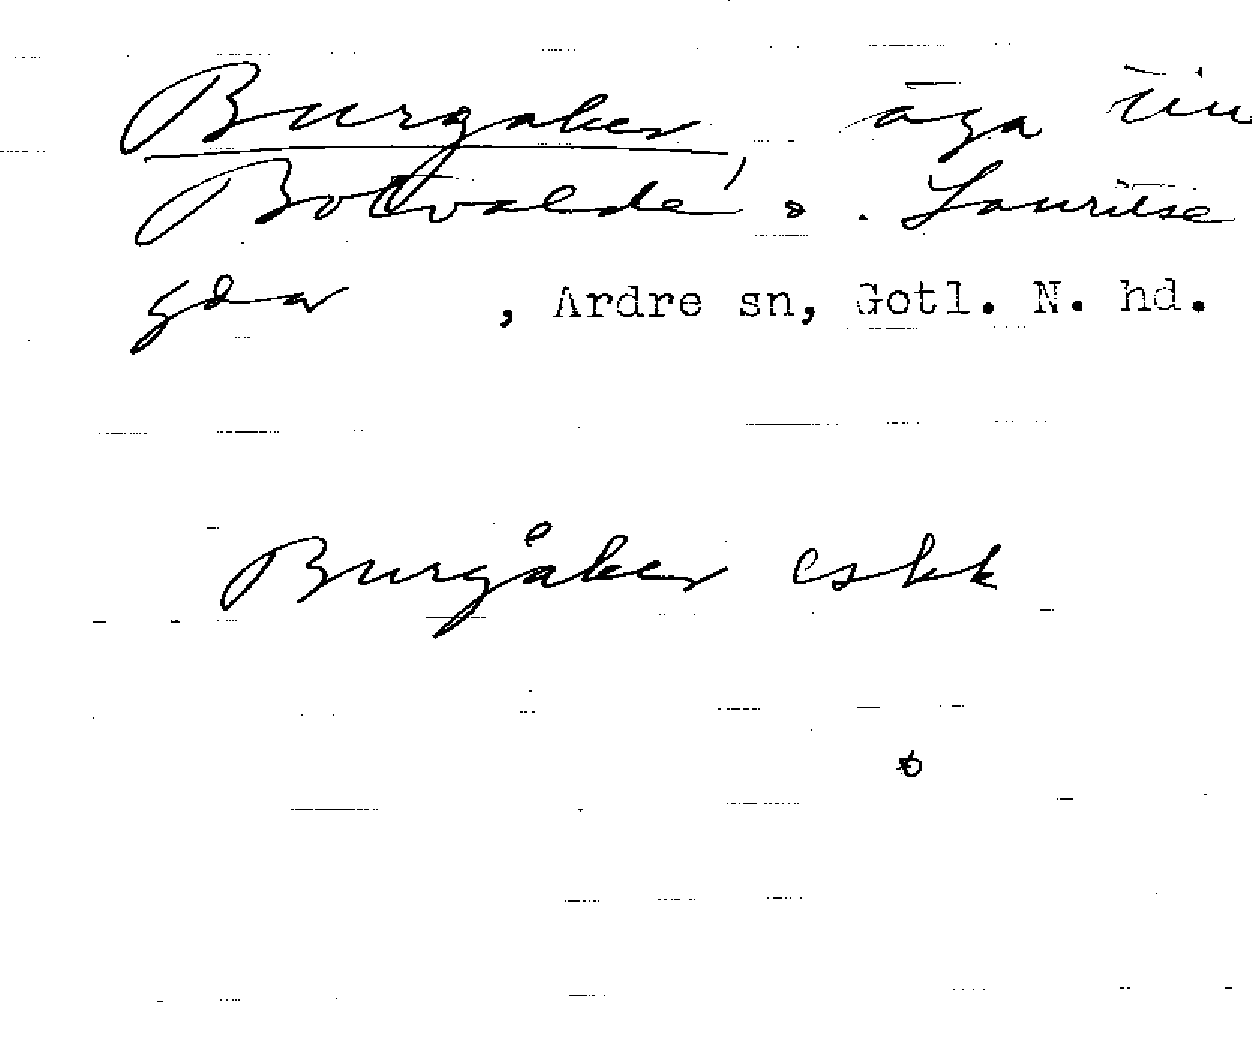 Burgaker, äga till
Botvalde o. Lauritse
gdar , Ardre sn, Gotl. N. hd.
Burgåker eskk